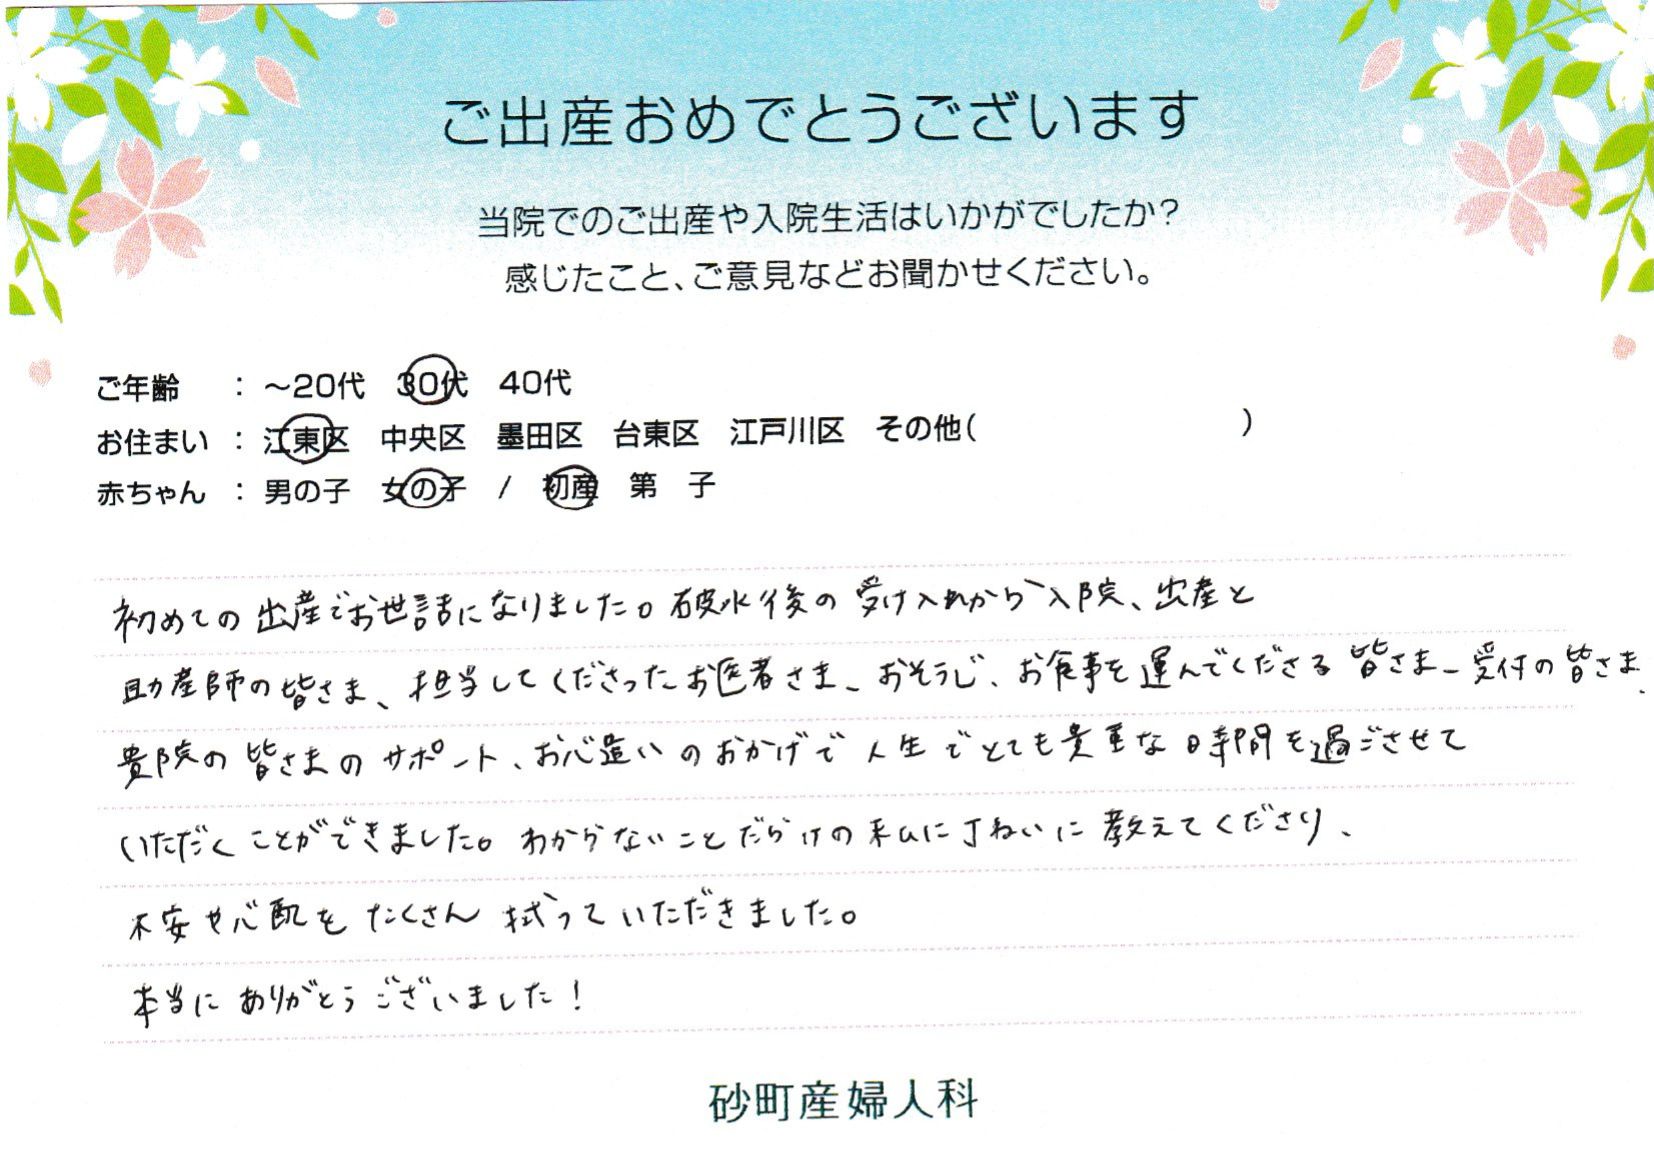 ご出産おめでとうございます
当院でのご出産や入院生活はいかがでしたか?
感じたこと、ご意見などお聞かせください。
ご年齢 : ～20代 30代 40代
お住まい : 江東区 中央区 墨田区 台東区 江戸川区 その他( )
赤ちゃん : 男の子 女の子 / 初産 第 子
初めての出産でお世話になりました。破水後の受け入れから入院、出産と
助産師の皆さま、担当してくださったお医者さま、おそうじ、お食事を運んでくださる皆さま、受付の皆さま、
貴院の皆さまのサポート、お心遣いのおかげで人生でとても貴重な時間を過ごさせて
いただくことができました。わからないことだらけの私に丁ねいに教えてくださり、
不安や心配をたくさん拭っていただきました。
本当にありがとうございました!
砂町産婦人科